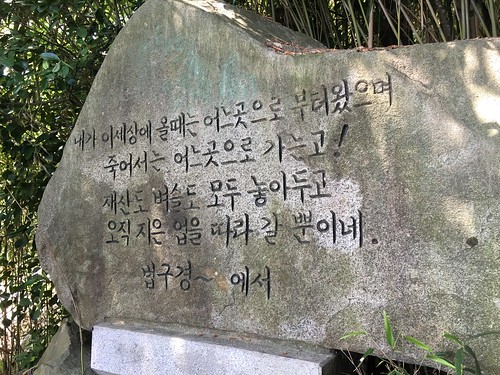 내가 이세상에 올때는 어느곳으로 부터왔으며
죽어서는 어느곳으로 가는고!
재산도 벼슬도 모두 놓아두고
오직 지은 업을 따라 갈 뿐이네.
법구경~ 에서